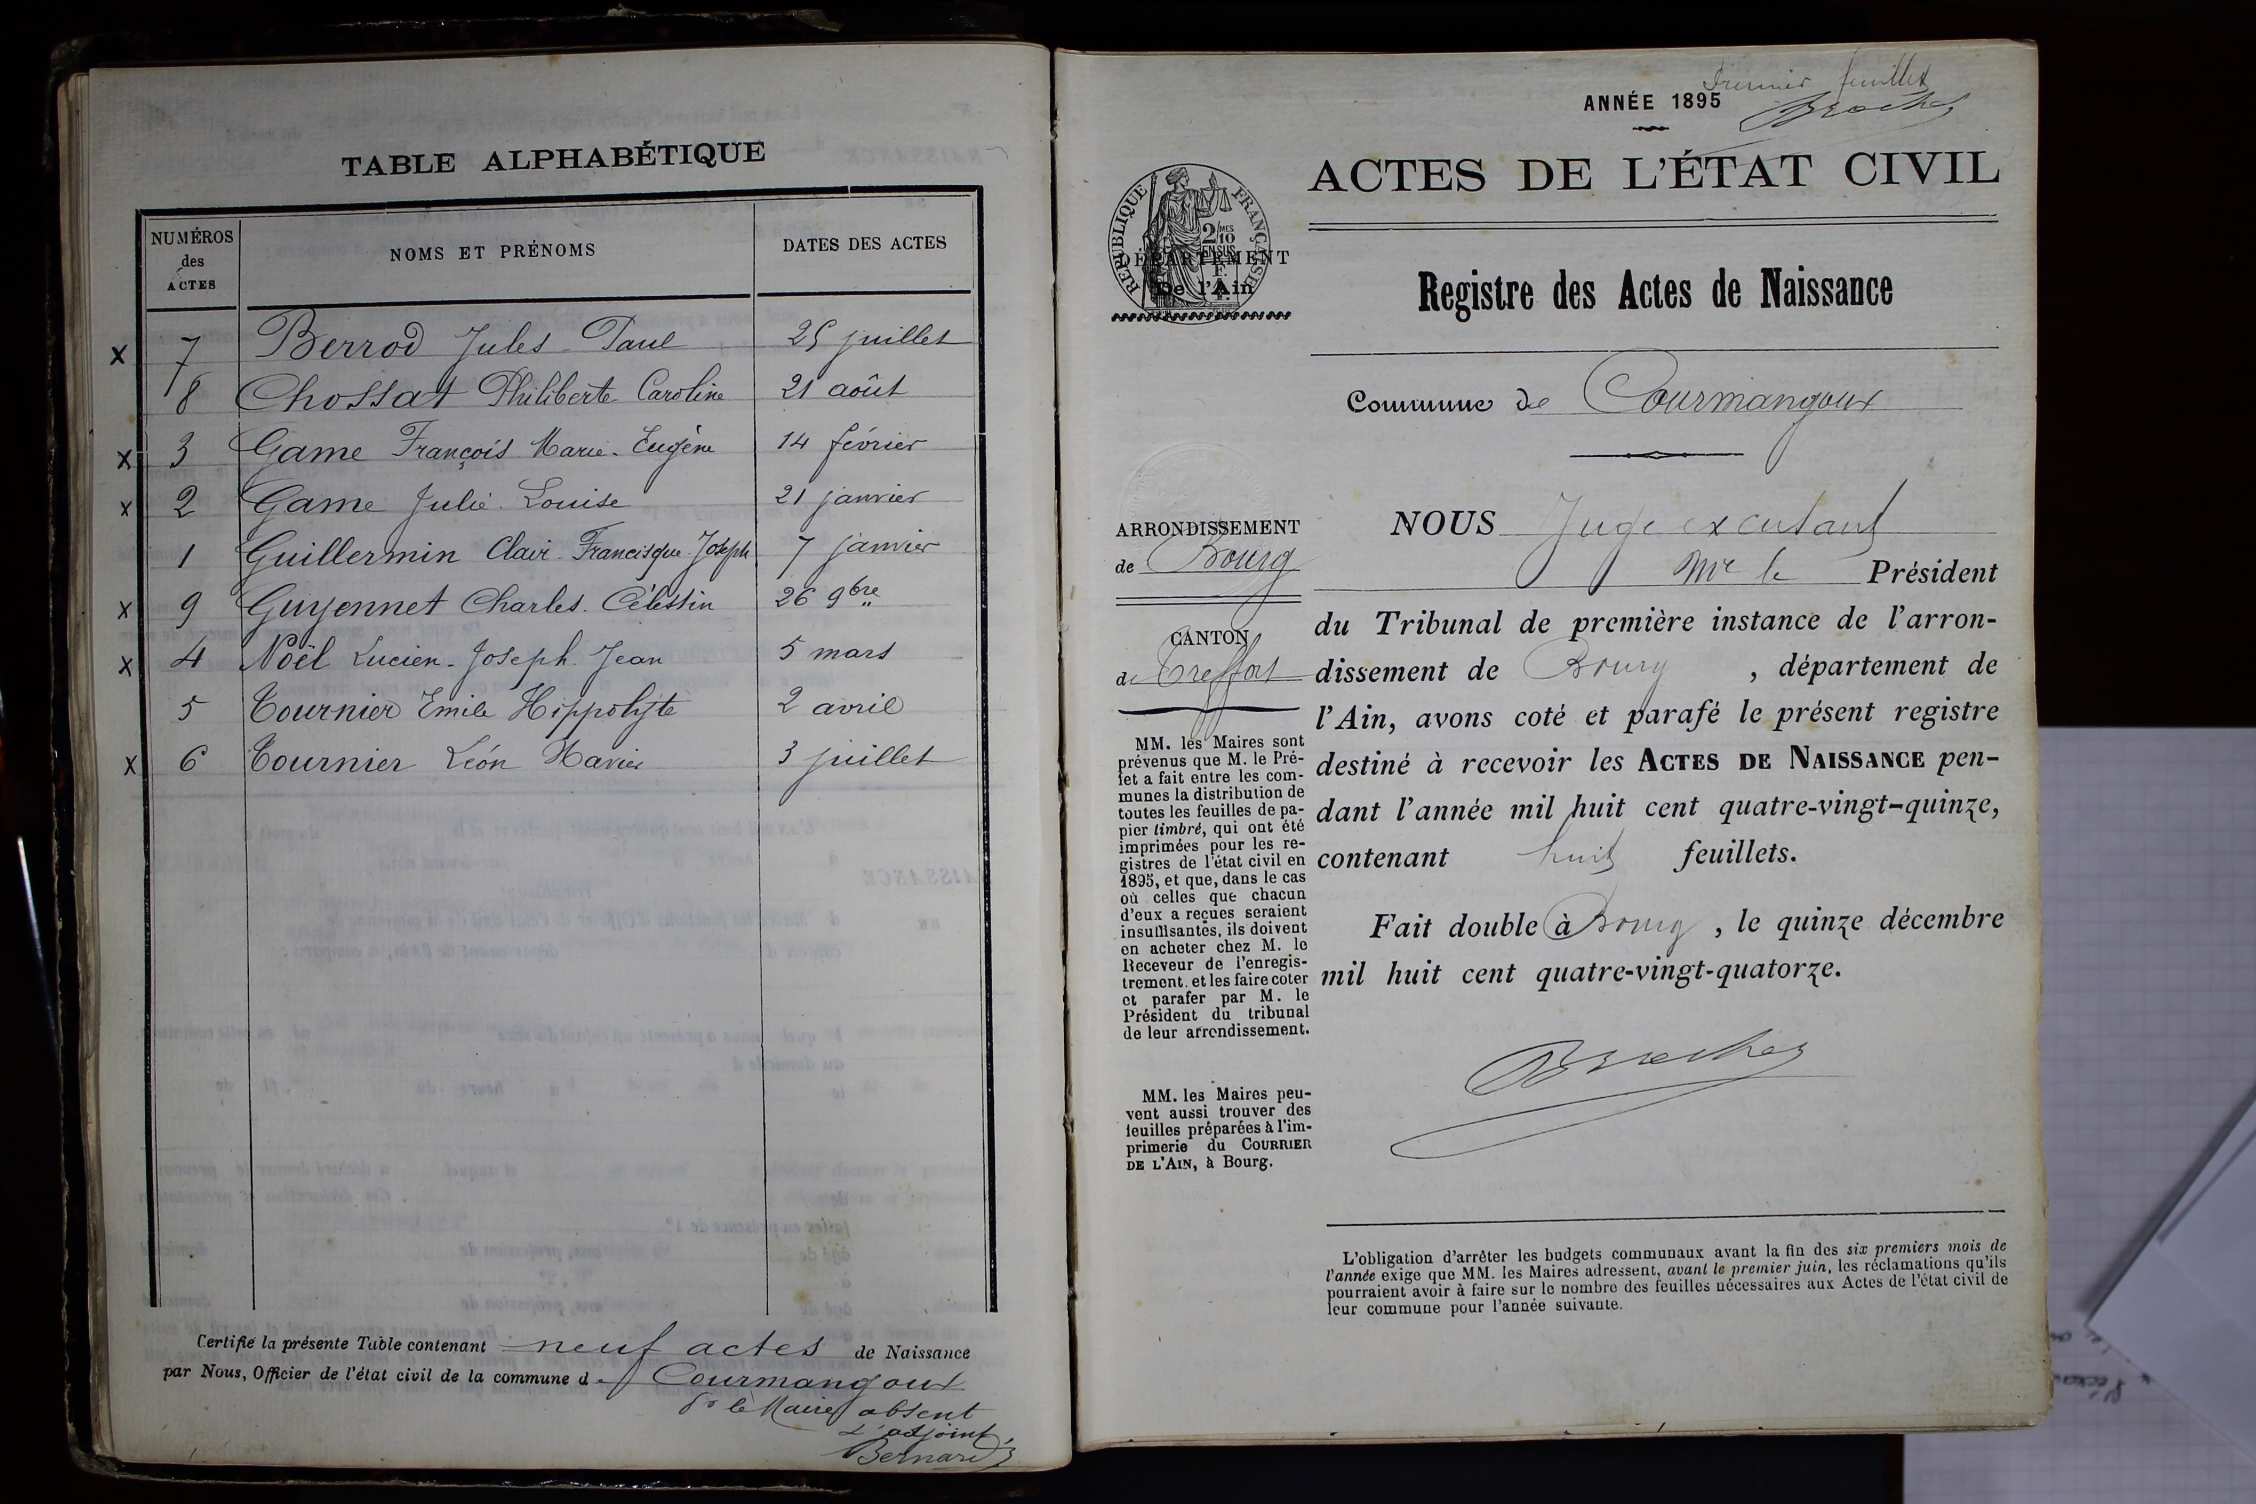 TABLE ALPHABÉTIQUE
NUMÉROS des ACTES
NOMS ET PRÉNOMS
DATES DES ACTES
x 7 Berrod Jules Paul 25 juillet
8 Chossat Philiberte Caroline 21 août
x 3 Game François Marie-Eugène 14 février
x 2 Game Julie Louise 21 janvier
1 Guillermin Clair Francisque Joseph 7 janvier
x 9 Guyennet Charles Célestin 26 9bre
x 4 Noël Lucien-Joseph Jean 5 mars
5 Tournier Emile Hippolyte 2 avril
x 6 Tournier Léon Xavier 3 juillet
Certifié la présente Table contenant neuf actes de Naissance
par Nous, Officier de l'état civil de la commune de Courmangoux
Pr le Maire absent
L'adjoint,
Bernard
Premier feuillet
ANNÉE 1895
Brochet
ACTES DE L'ÉTAT CIVIL
RÉPUBLIQUE FRANÇAISE
2/10 MES
EN SUS
DÉPARTEMENT
De l'Ain
Registre des Actes de Naissance
Commune de Courmangoux
ARRONDISSEMENT
de Bourg
CANTON
de Treffort
MM. les Maires sont
prévenus que M. le Pré-
fet a fait entre les com-
munes la distribution de
toutes les feuilles de pa-
pier timbré, qui ont été
imprimées pour les re-
gistres de l'état civil en
1895, et que, dans le cas
où celles que chacun
d'eux a reçues seraient
insuffisantes, ils doivent
en acheter chez M. le
Receveur de l'enregis-
trement. et les faire coter
et parafer par M. le
Président du tribunal
de leur arrondissement.
MM. les Maires peu-
vent aussi trouver des
feuilles préparées à l'im-
primerie du COURRIER
DE L'AIN, à Bourg.
NOUS Juge excutant
Mr le Président
du Tribunal de première instance de l'arron-
dissement de Bourg, département de
l'Ain, avons coté et parafé le présent registre
destiné à recevoir les ACTES DE NAISSANCE pen-
dant l'année mil huit cent quatre-vingt-quinze,
contenant huit feuillets.
Fait double à Bourg, le quinze décembre
mil huit cent quatre-vingt-quatorze.
Brochet
L'obligation d'arrêter les budgets communaux avant la fin des six premiers mois de
l'année exige que MM. les Maires adressent, avant le premier juin, les réclamations qu'ils
pourraient avoir à faire sur le nombre des feuilles nécessaires aux Actes de l'état civil de
leur commune pour l'année suivante.